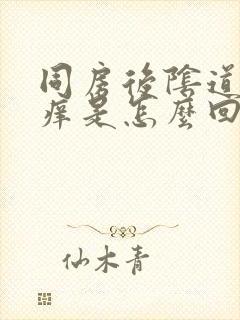 同房後陰道
痒是怎麼回
仙木青